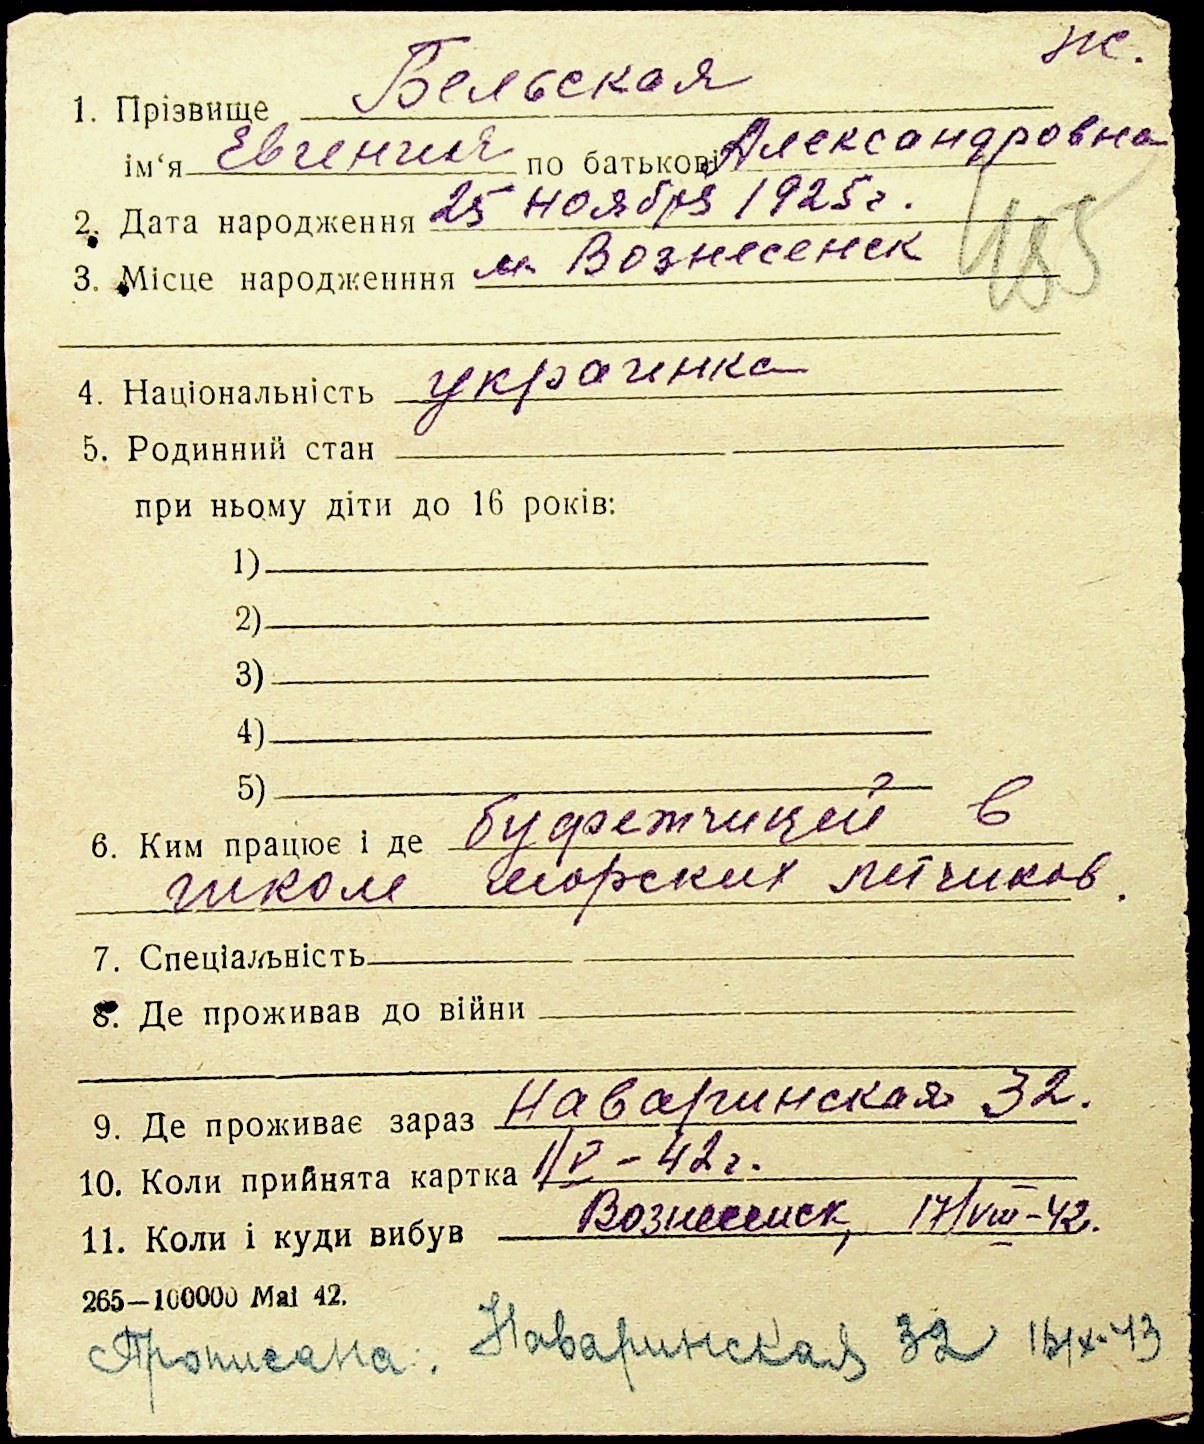 ж.
1. Прізвище Бельская
ім‘я Евгения по батькові Александровна
2. Дата народження 25 ноября 1925 г.
3. Місце народженння м. Вознесенск
185
4. Національність украинка
5. Родинний стан
при ньому діти до 16 років:
1)
2)
3)
4)
5)
6. Ким працює і де буфетчицей в
школе морских летчиков.
7. Спеціальність
8. Де проживав до війни
9. Де проживає зараз Наваринская 32.
10. Коли прийнята картка 1/V – 42 г.
11. Коли і куди вибув Вознесенск, 17/VIII – 42.
265—100000 Mai 42.
Прописана: Наваринская 32